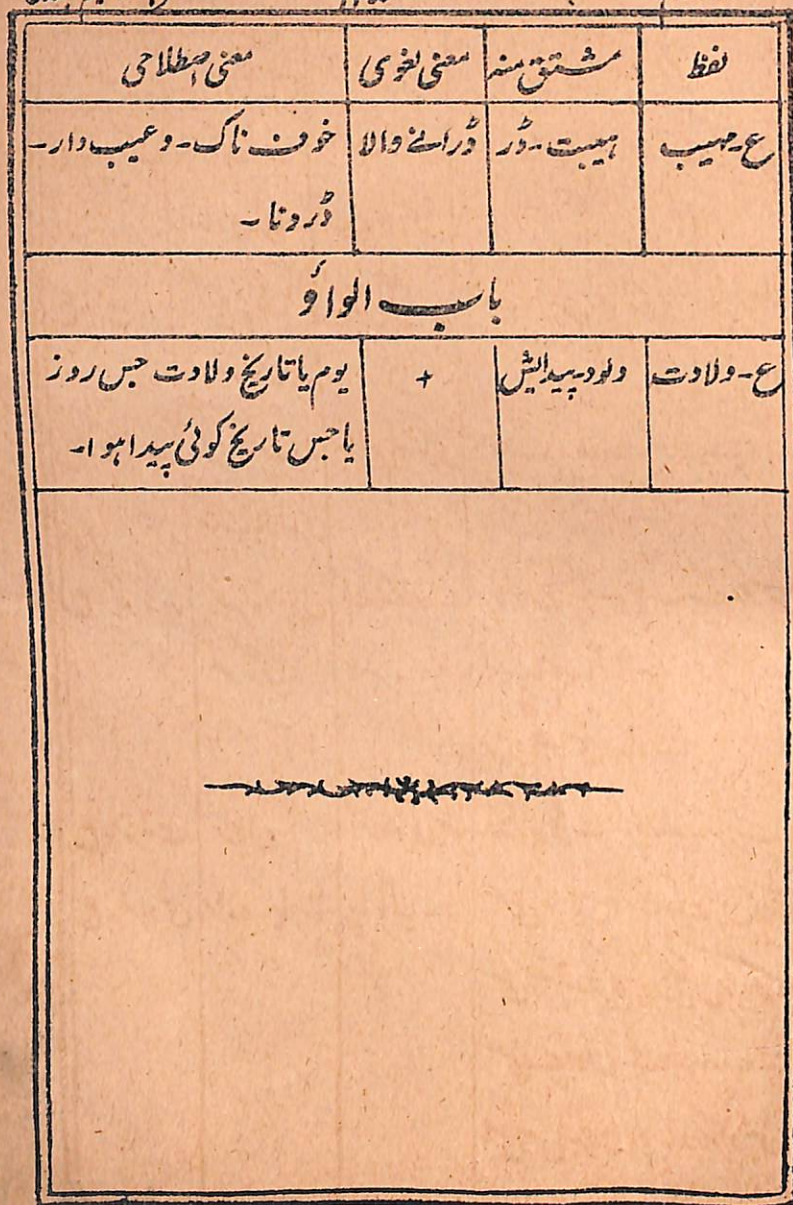 لفظ مشتق منہ معنی لغوی معنی اصطلاحی
ع۔مہیب ہیبت۔ڈر ڈرانے والا خوف ناک۔وعیب دار۔
ڈرونا۔
باب الواؤ
ع۔ولادت ولود۔پیدایش + یوم یا تاریخ ولادت جس روز
یا جس تاریخ کوئی پیدا ہوا۔